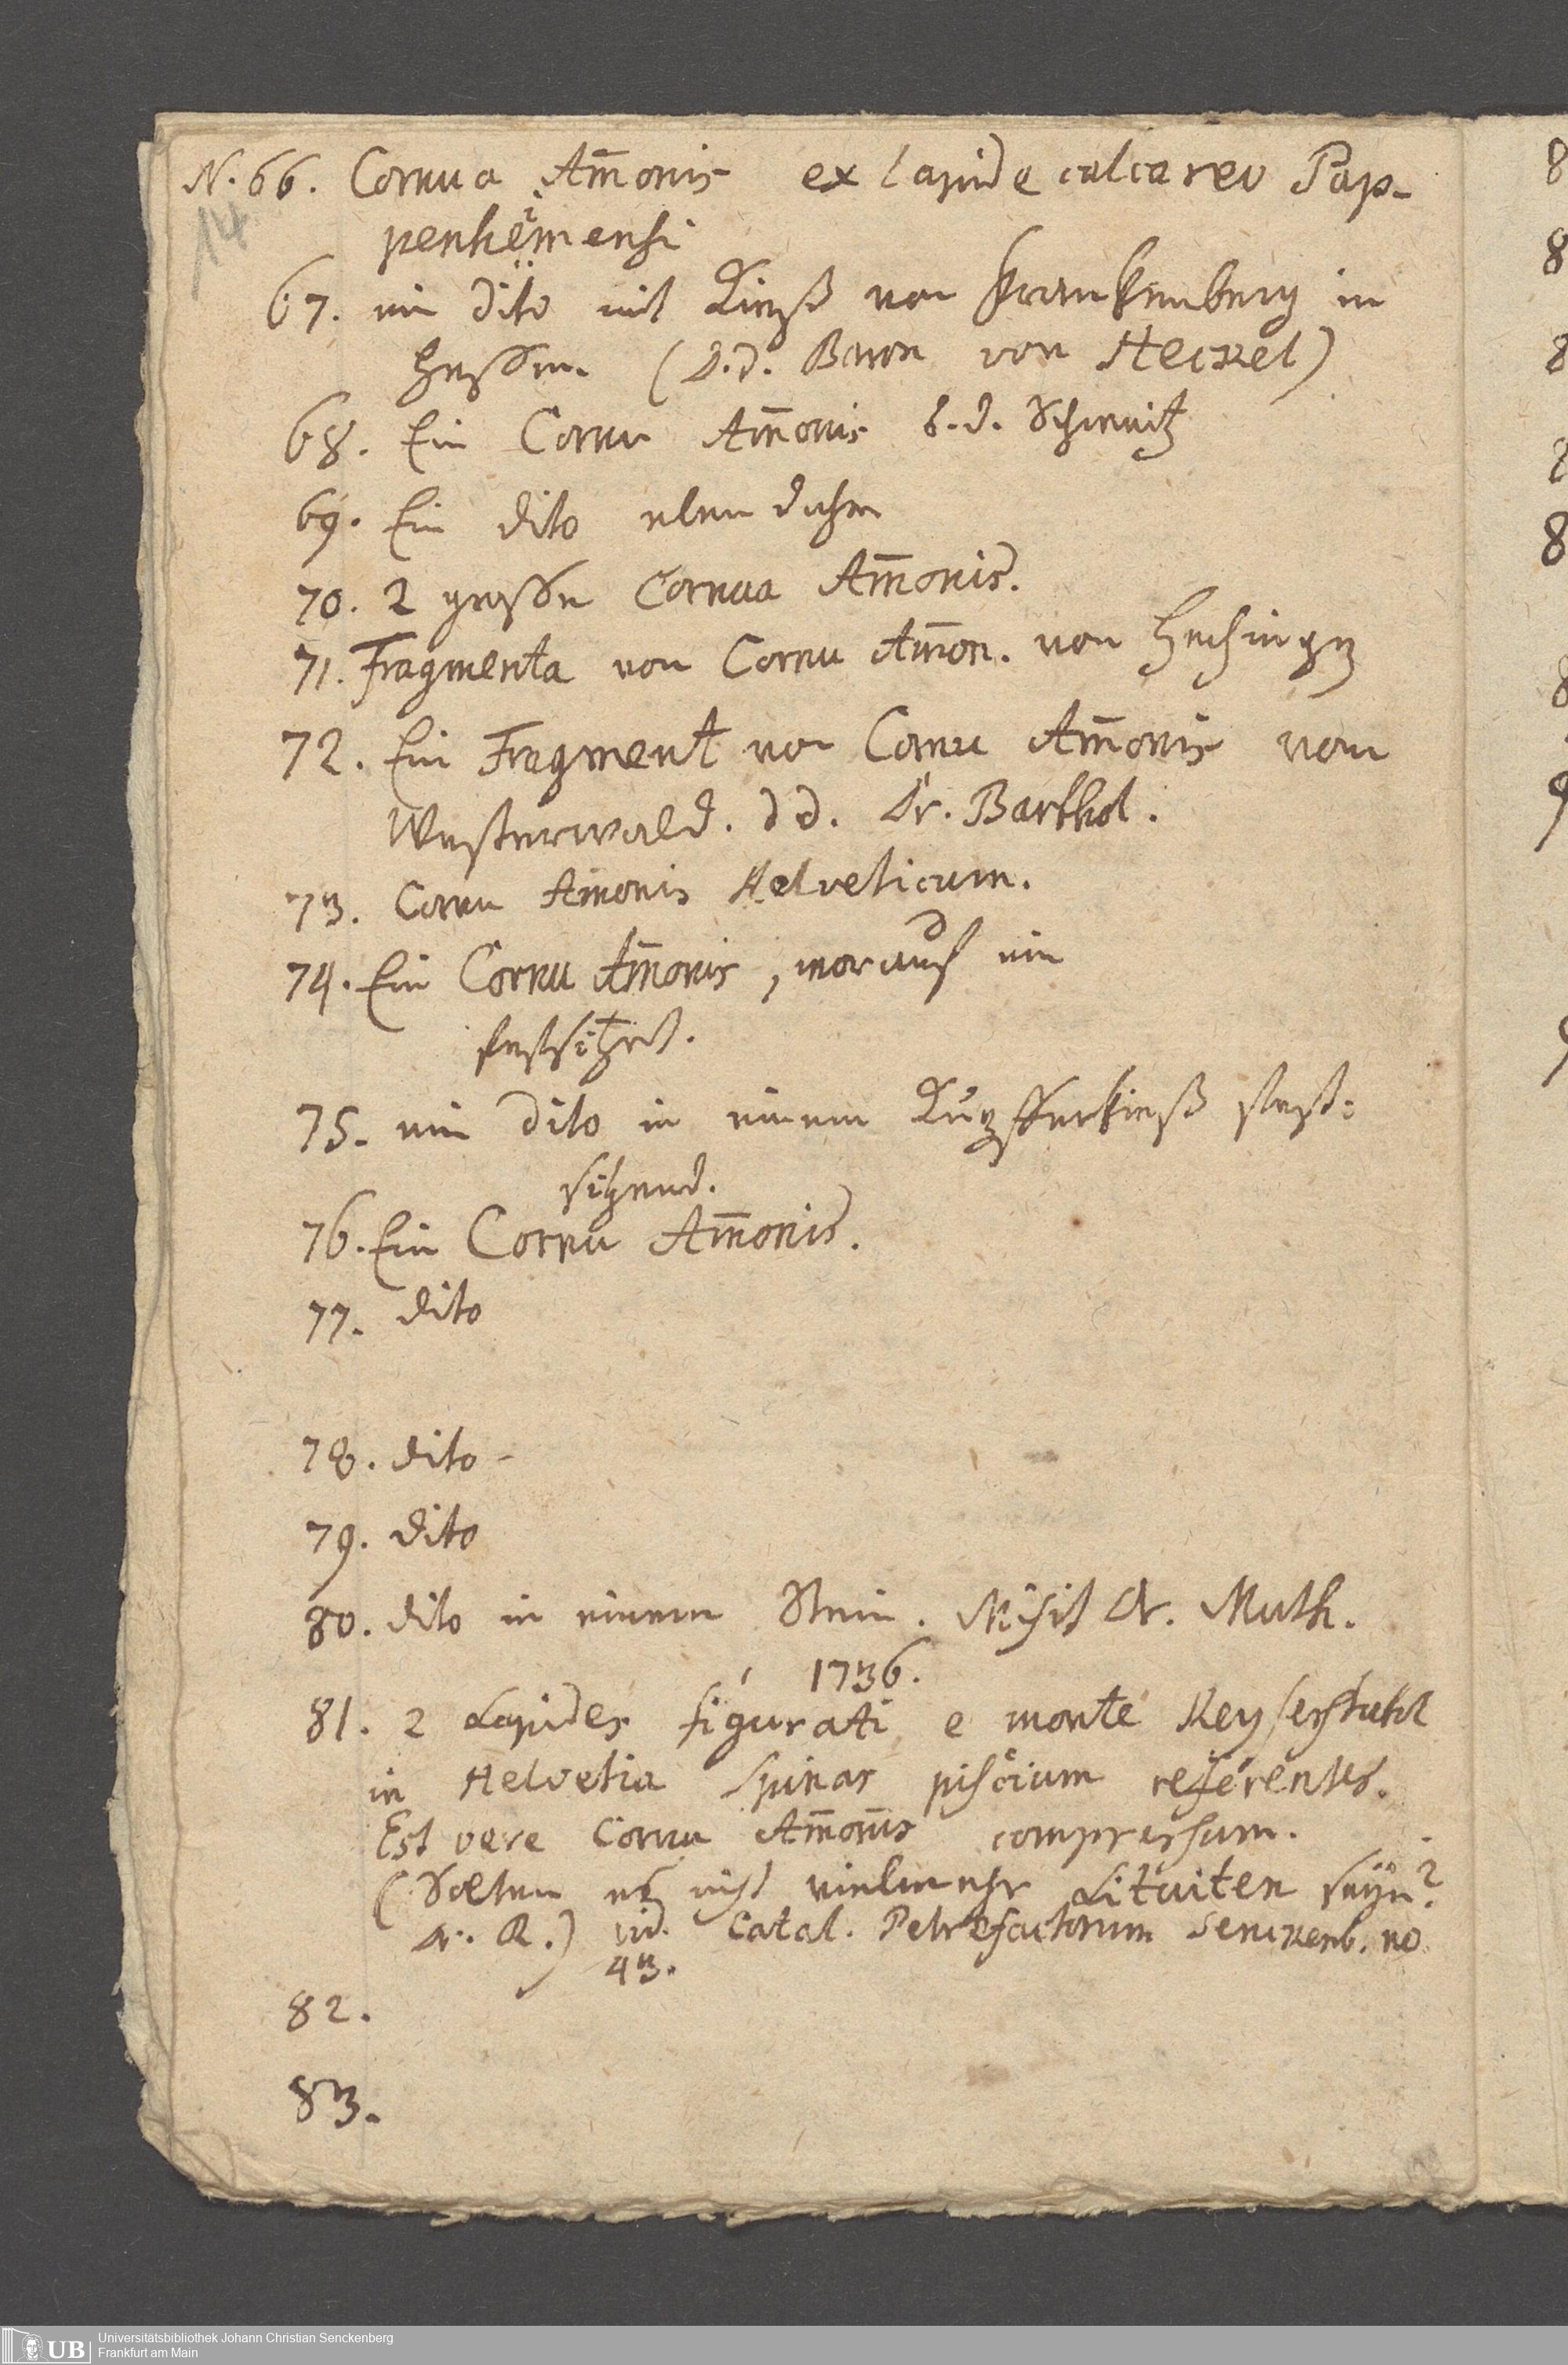 N. 66. Cornua Am̄onis ex lapide calcareo Pap-
penheimensi
14
67. ein dito mit Kieß von Frankenberg in
Hessen. (D.d. Baron von Heckel)
68. Ein Cornu Am̄onis d.d. Schmitz
69. Ein dito eben daher
70. 2 grosse Cornua Am̄onis.
71. Fragmenta von Cornu Am̄on. von Hechingen
72. Ein Fragment von Cornu Am̄onis vom
Westerwald. dd. Dr. Barthol.
73. Cornu Am̄onis Helveticum.
74. Ein Cornu Am̄onis, worauf ein
festsitzet.
75. ein dito in einem Kupfferkieß fest=
sitzend.
76. Ein Cornu Am̄onis.
77. dito
78. dito -
79. dito
80. dito in einem Stein. Misit Dr. Muth.
1736.
81. 2 Lapides figurati e monte Keyserstuhl
in Helvetia spinas piscium referentes.
Est vere Cornu Am̄onis compressum.
(Solten es nicht vielmehr Lituiten seyn?
R.) vid. Catal. Petrefactorum Senckenb. no
43.
82.
83.
UB
Universitätsbibliothek Johann Christian Senckenberg
Frankfurt am Main